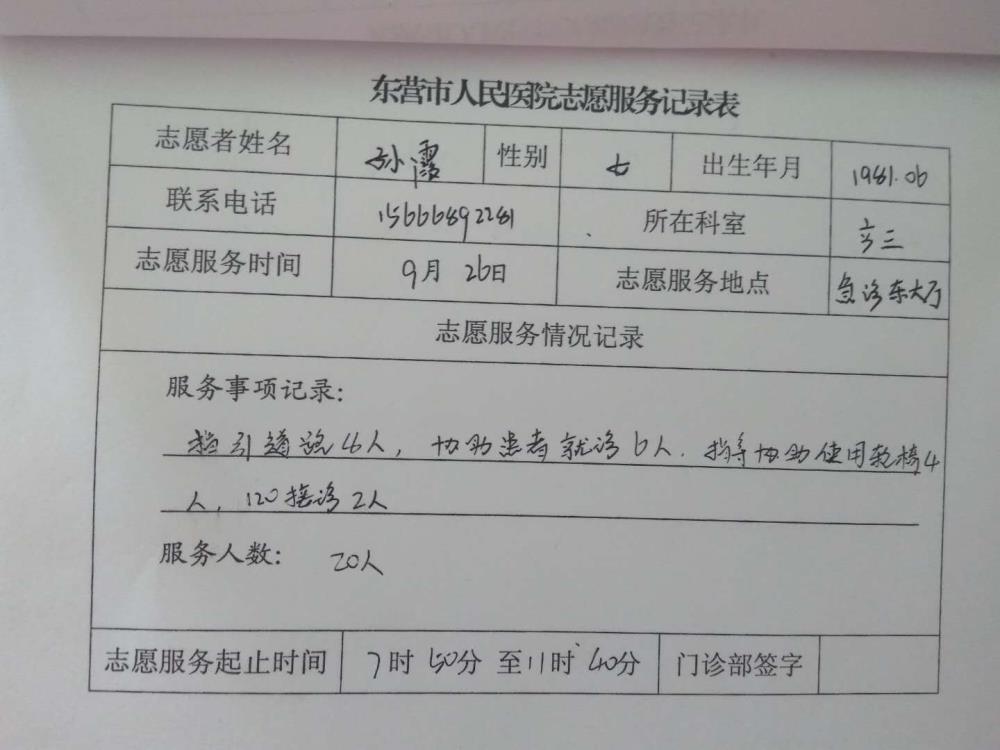 东营市人民医院志愿服务记录表
志愿者姓名 孙霞 性别 女 出生年月 1981.06
联系电话 15666892281 所在科室
志愿服务时间 9月 26日 志愿服务地点 急诊东大厅
志愿服务情况记录
服务事项记录:
指引道路 人, 协助患者就诊6人. 指导协助使用轮椅4
人, 120接诊2人
服务人数: 20人
志愿服务起止时间 7时50分 至11时40分 门诊部签字